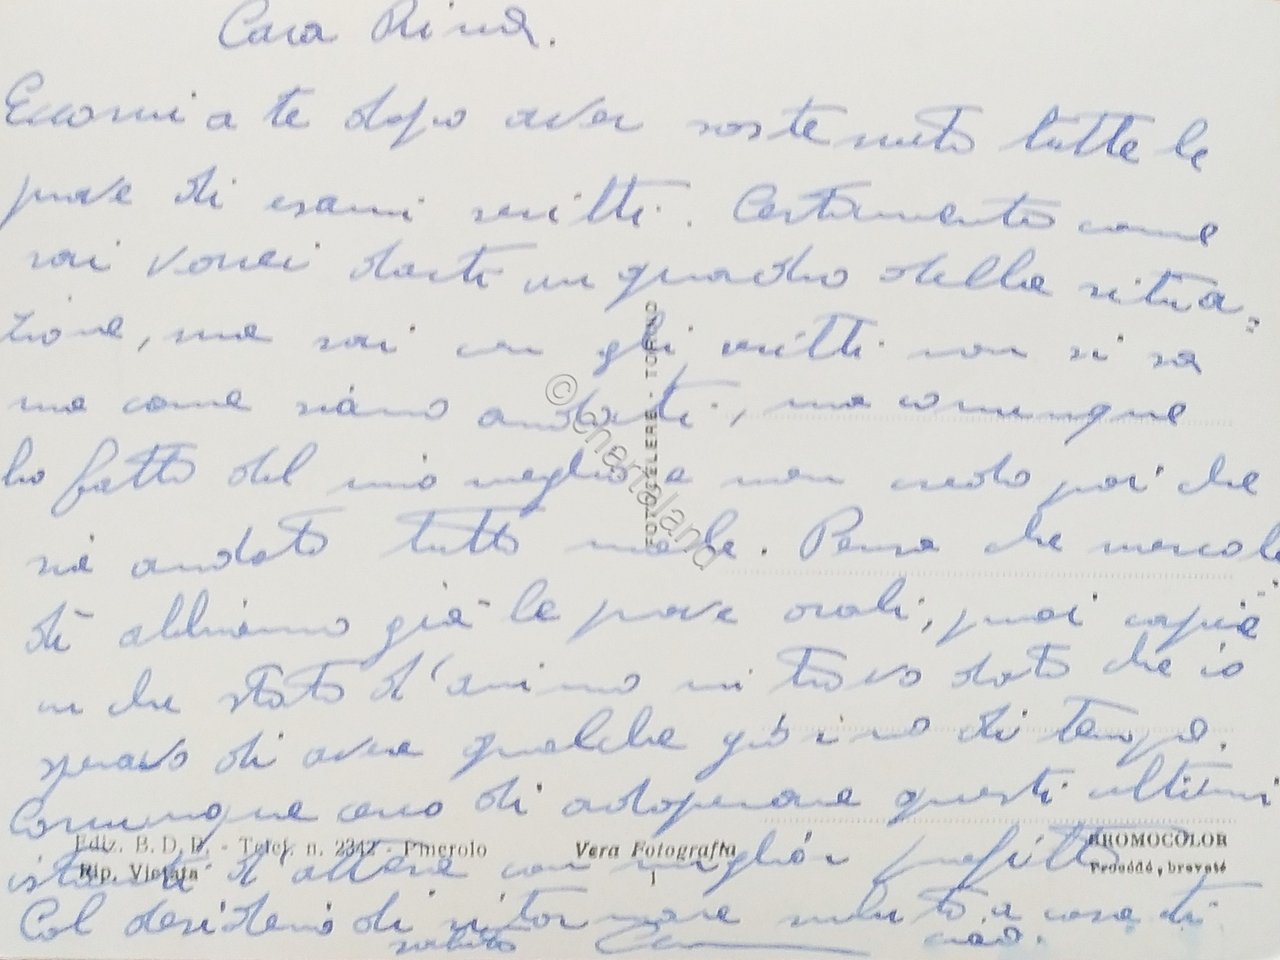 Cara Rina.
Eccomi a te dopo aver sostenuto tutte le
prove di esami scritti. Certamente come
sai vorrei darti un quadro della situa=
zione, ma sai con gli scritti non si sa
mai come siano andati, ma comunque
ho fatto del mio meglio e non credo poi che
sia andato tutto male. Pensa che mercole
dì abbiamo già le prove orali, puoi capire
in che stato d'animo mi trovo dato che io
speravo di aver qualche giorno di tempo.
Comunque cerco di adoperare questi ultimi
istanti d'attesa con miglior profitto
Col desiderio di ritornare subito a casa ti
saluto ciao.
FOTOCELERE - TORINO
© Chartaland
Ediz. B. D. D. - Telef. n. 2342 - Pinerolo
Rip. Vietata
Vera Fotografia
1
BROMOCOLOR
Procédé breveté